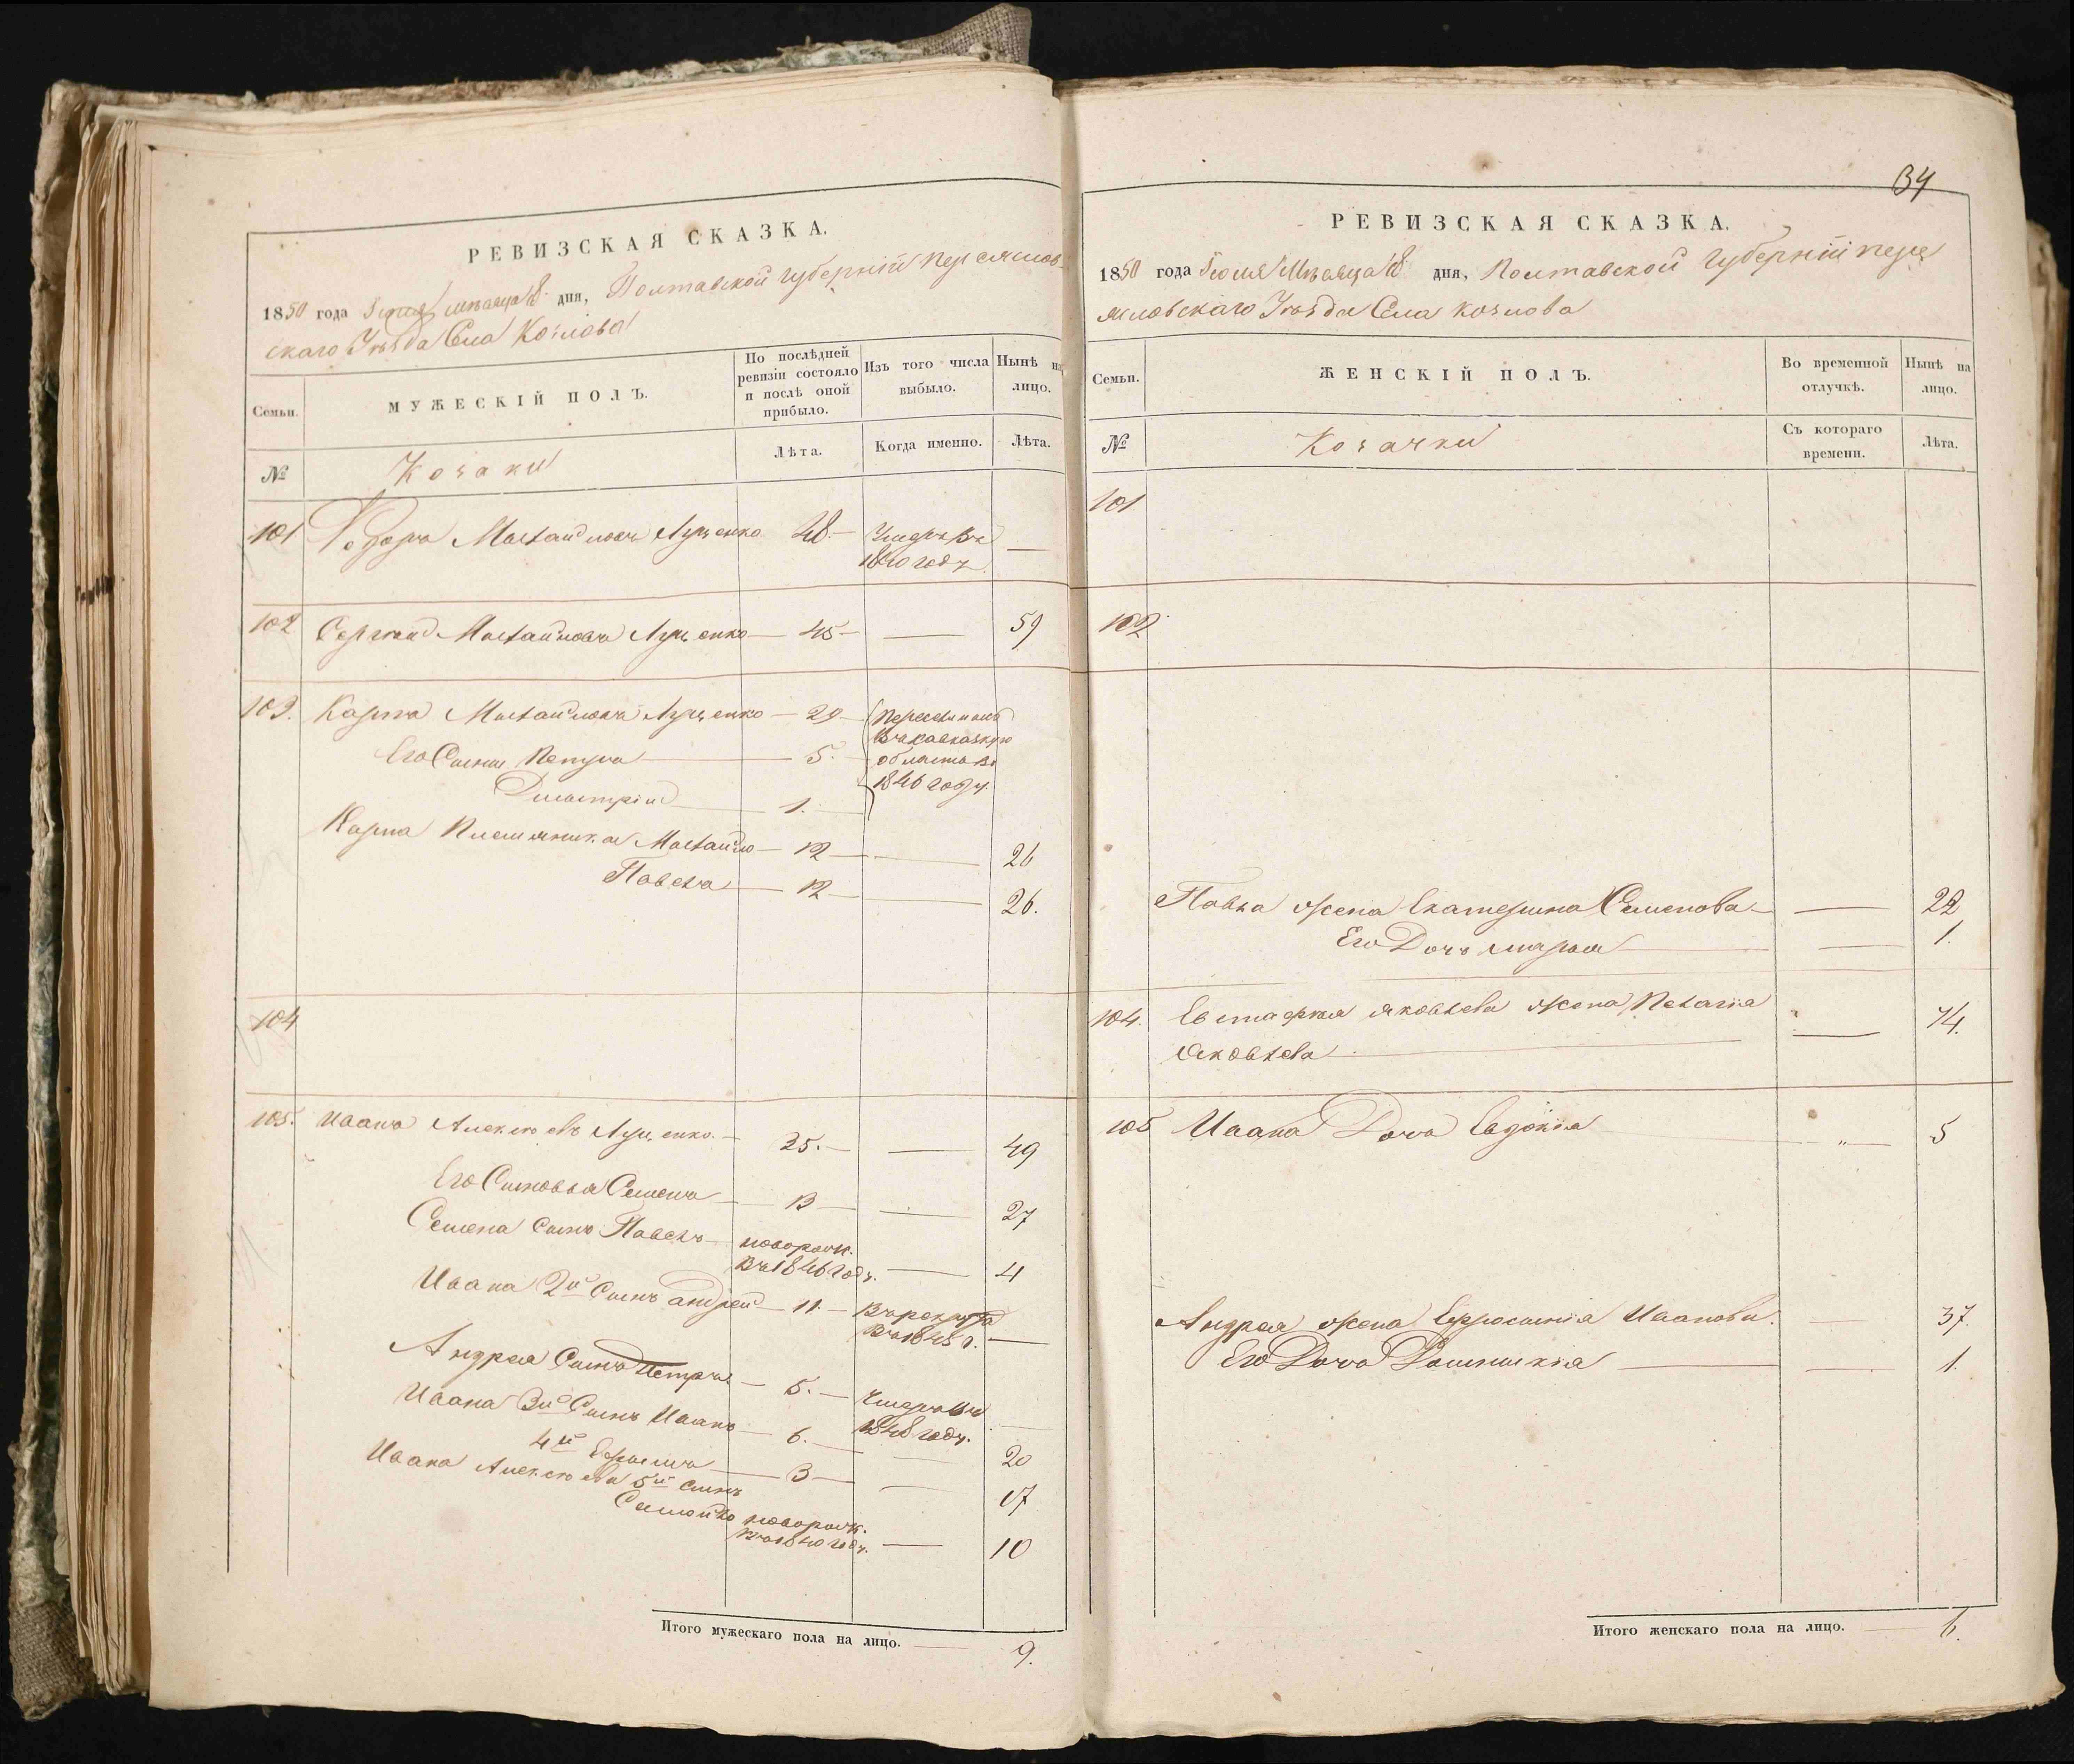 РЕВИЗСКАЯ СКАЗКА.
1850 года Июля Мѣсяца 18 дня, Полтавской Губерніи Переяслов-
скаго Уѣзда Села Козлова
Семьи.
МУЖЕСКІЙ ПОЛЪ.
По послѣдней ревизіи состояло и послѣ оной прибыло.
Изъ того числа выбыло.
Нынѣ на лицо.
№
Козаки
Лѣта.
Когда именно.
Лѣта.
101 Федоръ Михайловъ Луценко 48 Умеръ въ —
1840 году
102 Сергѣй Михайловъ Луценко 45 — 59
103. Карпъ Михайловъ Луценко 29 Переселился
въ Кавказкую
Его Сыны Петръ 5. область въ
1846 году.
Дмитрій 1.
Карпа Племянники Михайло 12 — 26
Павелъ 12 — 26.
104
105. Иванъ Алексѣевъ Луценко. 35. — 49
Его Сыновья Семенъ 13 — 27
Семена Сынъ Павелъ новорожд.
въ 1846 году. — 4
Ивана 2й Сынъ Андрей 11. Въ рекруты
въ 1845 г. —
Андрея Сынъ Петръ 5. Умеръ въ
1848 году.
Ивана 3й Сынъ Иванъ 6. — 20
4й Ефимъ 3 — 17
Ивана Алексѣева 5й сынъ
Самойло новорожд.
въ 1840 году. — 10
Итого мужескаго пола на лицо. 9.
34
РЕВИЗСКАЯ СКАЗКА.
1850 года Іюля Мѣсяца 18 дня, Полтавской Губерніи Перея
словскаго Уѣзда Села Козлова
Семьи.
ЖЕНСКІЙ ПОЛЪ.
Во временной отлучкѣ.
Нынѣ на лицо.
№
Козачки
Съ котораго времени.
Лѣта.
101
102
Павла жена Екатерина Семенова — 22
Его Дочь Марья — 1.
104. Евстафія Яковлева жена Пелагія
Яковлева — 74.
105 Ивана Дочь Евдокія „ — 5
Андрея жена Ефросинія Иванова. — 37.
Его Дочь — 1.
Итого женскаго пола на лицо. 6.